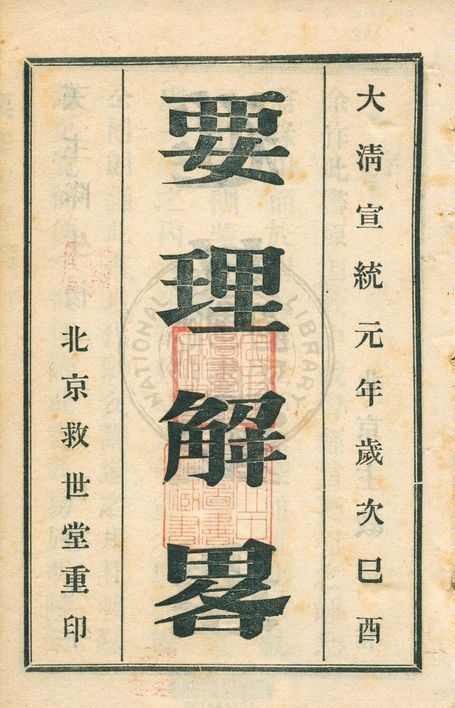 大清宣統元年歲次己酉
要理解畧
北京救世堂重印
NATIONAL LIBRARY